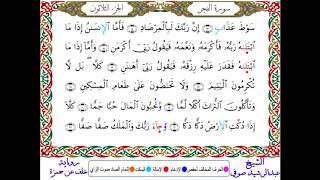 الجزء الثلاثون
سورة الفجر
سَوْطَ عَذَابٍ ۝ إِنَّ رَبَّكَ لَبِالْمِرْصَادِ ۝ فَأَمَّا الْإِنسَٰنُ إِذَا مَا
ابْتَلَىٰهُ رَبُّهُ فَأَكْرَمَهُ وَنَعَّمَهُ فَيَقُولُ رَبِّي أَكْرَمَنِ ۝ وَأَمَّا إِذَا مَا
ابْتَلَىٰهُ فَقَدَرَ عَلَيْهِ رِزْقَهُ فَيَقُولُ رَبِّي أَهَٰنَنِ ۝ كَلَّا بَل لَّا
تُكْرِمُونَ الْيَتِيمَ ۝ وَلَا تَحَٰضُّونَ عَلَىٰ طَعَامِ الْمِسْكِينِ ۝
وَتَأْكُلُونَ التُّرَاثَ أَكْلًا لَّمًّا ۝ وَتُحِبُّونَ الْمَالَ حُبًّا جَمًّا ۝ كَلَّا
إِذَا دُكَّتِ الْأَرْضُ دَكًّا دَكًّا ۝ وَجَاءَ رَبُّكَ وَالْمَلَكُ صَفًّا صَفًّا ۝
الشيخ
عبدالرشيد صوفي
رواية
خلف عن حمزة